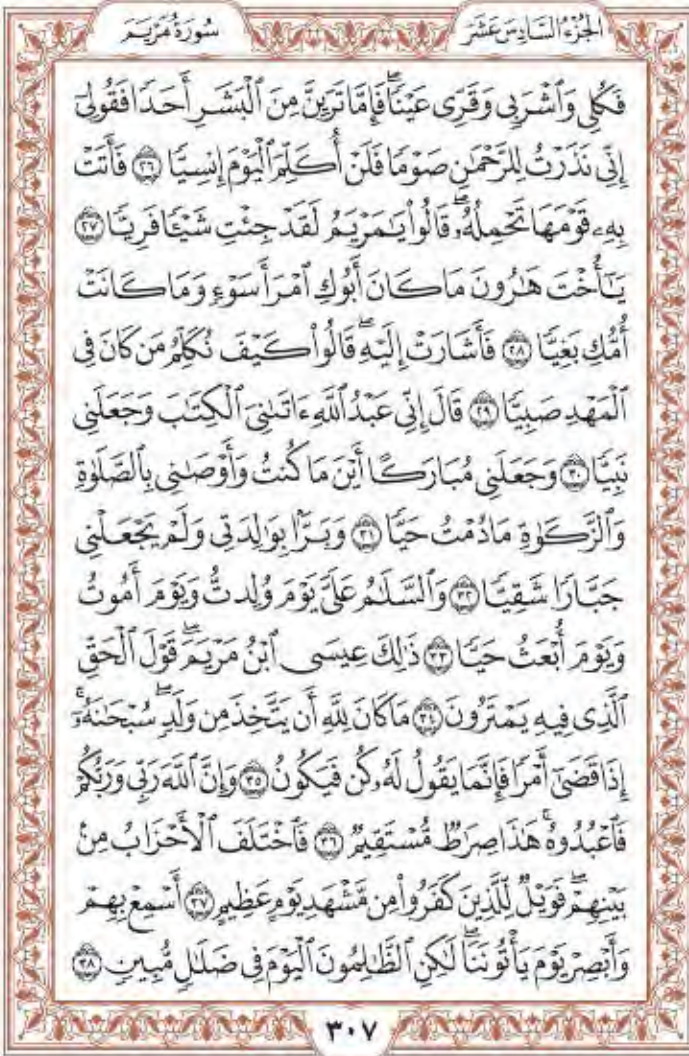 الجُزْءُ السَّادِسَ عَشَرَ
سُورَةُ مَرْيَمَ
فَكُلِي وَٱشْرَبِي وَقَرِّي عَيْنٗاۖ فَإِمَّا تَرَيِنَّ مِنَ ٱلْبَشَرِ أَحَدٗا فَقُولِيٓ
إِنِّي نَذَرْتُ لِلرَّحْمَٰنِ صَوْمٗا فَلَنْ أُكَلِّمَ ٱلْيَوْمَ إِنسِيّٗا ٢٦ فَأَتَتْ
بِهِۦ قَوْمَهَا تَحْمِلُهُۥۖ قَالُواْ يَٰمَرْيَمُ لَقَدْ جِئْتِ شَيْـٔٗا فَرِيّٗا ٢٧
يَٰٓأُخْتَ هَٰرُونَ مَا كَانَ أَبُوكِ ٱمْرَأَ سَوْءٖ وَمَا كَانَتْ
أُمُّكِ بَغِيّٗا ٢٨ فَأَشَارَتْ إِلَيْهِۖ قَالُواْ كَيْفَ نُكَلِّمُ مَن كَانَ فِي
ٱلْمَهْدِ صَبِيّٗا ٢٩ قَالَ إِنِّي عَبْدُ ٱللَّهِ ءَاتَىٰنِيَ ٱلْكِتَٰبَ وَجَعَلَنِي
نَبِيّٗا ٣٠ وَجَعَلَنِي مُبَارَكًا أَيْنَ مَا كُنتُ وَأَوْصَٰنِي بِٱلصَّلَوٰةِ
وَٱلزَّكَوٰةِ مَا دُمْتُ حَيّٗا ٣١ وَبَرَّۢا بِوَٰلِدَتِي وَلَمْ يَجْعَلْنِي
جَبَّارٗا شَقِيّٗا ٣٢ وَٱلسَّلَٰمُ عَلَيَّ يَوْمَ وُلِدتُّ وَيَوْمَ أَمُوتُ
وَيَوْمَ أُبْعَثُ حَيّٗا ٣٣ ذَٰلِكَ عِيسَى ٱبْنُ مَرْيَمَۖ قَوْلَ ٱلْحَقِّ
ٱلَّذِي فِيهِ يَمْتَرُونَ ٣٤ مَا كَانَ لِلَّهِ أَن يَتَّخِذَ مِن وَلَدٖۖ سُبْحَٰنَهُۥٓۚ
إِذَا قَضَىٰٓ أَمْرٗا فَإِنَّمَا يَقُولُ لَهُۥ كُن فَيَكُونُ ٣٥ وَإِنَّ ٱللَّهَ رَبِّي وَرَبُّكُمْ
فَٱعْبُدُوهُۚ هَٰذَا صِرَٰطٞ مُّسْتَقِيمٞ ٣٦ فَٱخْتَلَفَ ٱلْأَحْزَابُ مِنۢ
بَيْنِهِمْۖ فَوَيْلٞ لِّلَّذِينَ كَفَرُواْ مِن مَّشْهَدِ يَوْمٍ عَظِيمٍ ٣٧ أَسْمِعْ بِهِمْ
وَأَبْصِرْ يَوْمَ يَأْتُونَنَاۖ لَٰكِنِ ٱلظَّٰلِمُونَ ٱلْيَوْمَ فِي ضَلَٰلٖ مُّبِينٖ ٣٨
٣٠٧